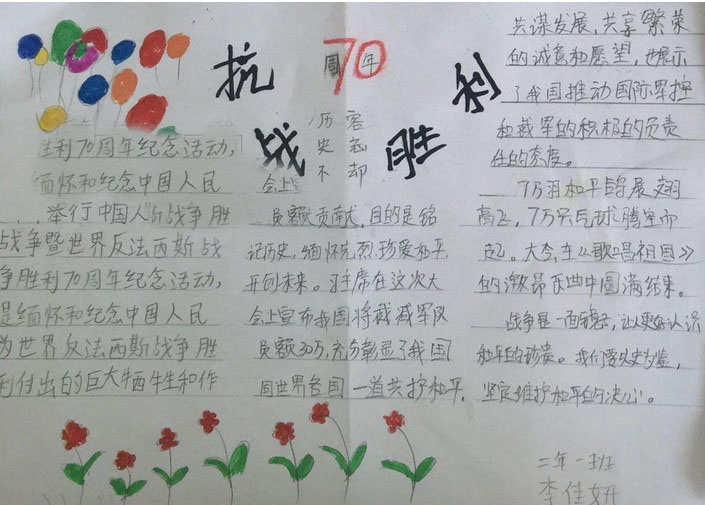 抗战胜利
70
周年
历史不
容忘却
胜利70周年纪念活动，
缅怀和纪念中国人民
举行中国人 战争胜
战争暨世界反法西斯战
争胜利70周年纪念活动，
是缅怀和纪念中国人民
为世界反法西斯战争胜
利付出的巨大牺牲和作
会上宣
员额贡献，目的是铭
记历史，缅怀先烈，珍爱和平，
开创未来。习主席在这次大
会上宣布我国将裁减军队
员额30万，充分彰显了我国
同世界各国一道共护和平，
共谋发展，共享繁荣
的诚意和愿望，也展示
了我国推动国际军控
和裁军的积极的负责
任的态度。
7万羽和平鸽展翅
高飞，7万只气球腾空而
起。大会在《歌唱祖国》
的激昂 曲中圆满结束。
战争是一面镜子，让人更好认识
和平的珍贵。我们要以史为鉴，
坚定维护和平的决心。
二年一班
李佳妍